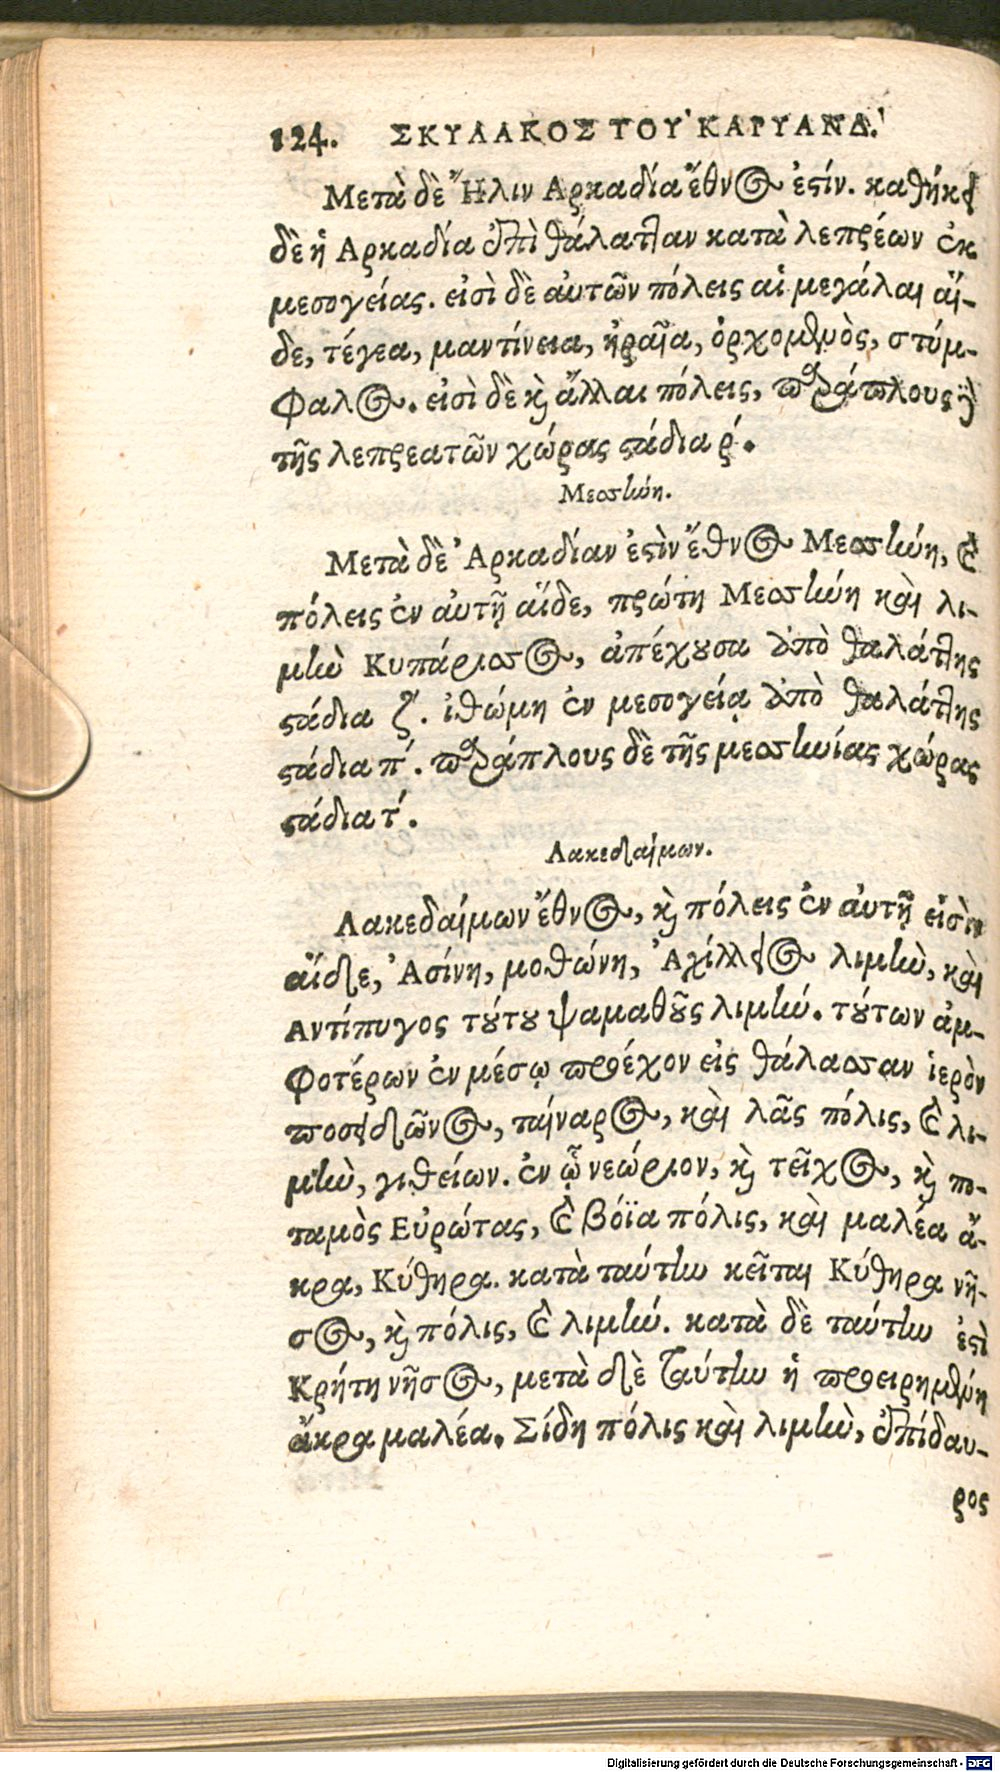 124. ΣΚΥΛΑΚΟΣ ΤΟΥ ΚΑΡΥΑΝΔ.
Μετὰ δὲ Ἦλιν Αρκαδία ἔθνος ἐστίν. καθήκει
δὲ ἡ Αρκαδία ἐπὶ θάλατταν κατὰ λεπρέων ἐκ
μεσογείας. εἰσὶ δὲ αὐτῶν πόλεις αἱ μεγάλαι αἵ-
δε, τέγεα, μαντίνεια, ἡραῖα, ὀρχομενὸς, στύμ-
φαλος. εἰσὶ δὲ καὶ ἄλλαι πόλεις, παράπλους
τῆς λεπρεατῶν χώρας στάδια ρ΄.
Μεσσήνη.
Μετὰ δὲ Ἀρκαδίαν ἐστὶν ἔθνος Μεσσήνη, καὶ
πόλεις ἐν αὐτῇ αἵδε, πρώτη Μεσσήνη καὶ λι-
μὴν Κυπάρισσος, ἀπέχουσα ἀπὸ θαλάττης
στάδια ζ΄. ἰθώμη ἐν μεσογείᾳ ἀπὸ θαλάττης
στάδια π΄. παράπλους δὲ τῆς μεσσηνίας χώρας
στάδια τ΄.
Λακεδαίμων.
Λακεδαίμων ἔθνος, καὶ πόλεις ἐν αὐτῇ εἰσὶν
αἵδε, Ἀσίνη, μοθώνη, Ἀχίλλειος λιμὴν, καὶ
Αντίπυγος τούτου ψαμαθοῦς λιμήν. τούτων ἀμ-
φοτέρων ἐν μέσῳ προέχον εἰς θάλασσαν ἱερὸν
ποσειδῶνος, ταίναρος, καὶ λᾶς πόλις, καὶ λι-
μὴν, γιθείων. ἐν ᾧ νεώριον, καὶ τεῖχος, καὶ πο-
ταμὸς Εὐρώτας, καὶ βόϊα πόλις, καὶ μαλέα ἄ-
κρα, Κύθηρα. κατὰ ταύτην κεῖται Κύθηρα νῆ-
σος, καὶ πόλις, καὶ λιμήν. κατὰ δὲ ταύτην ἐστὶ
Κρήτη νῆσος, μετὰ δὲ ταύτην ἡ προειρημένη
ἄκρα μαλέα. Σίδη πόλις καὶ λιμὴν, ἐπίδαυ-
ρος
Digitalisierung gefördert durch die Deutsche Forschungsgemeinschaft - DFG